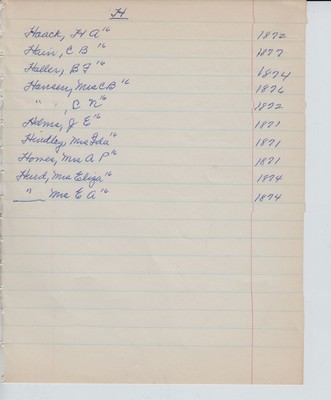 H
Haack, H A "16 1872
Hain, C B "16 1877
Haller, B F "16 1874
Hansen, Mrs C B "16 1876
" " , C N "16 1872
Helms, J E "16 1871
Hindley, Mrs Ida "16 1871
Homes, Mrs A P "16 1871
Hurd, Mrs Eliza "16 1874
" Mrs E A "16 1874